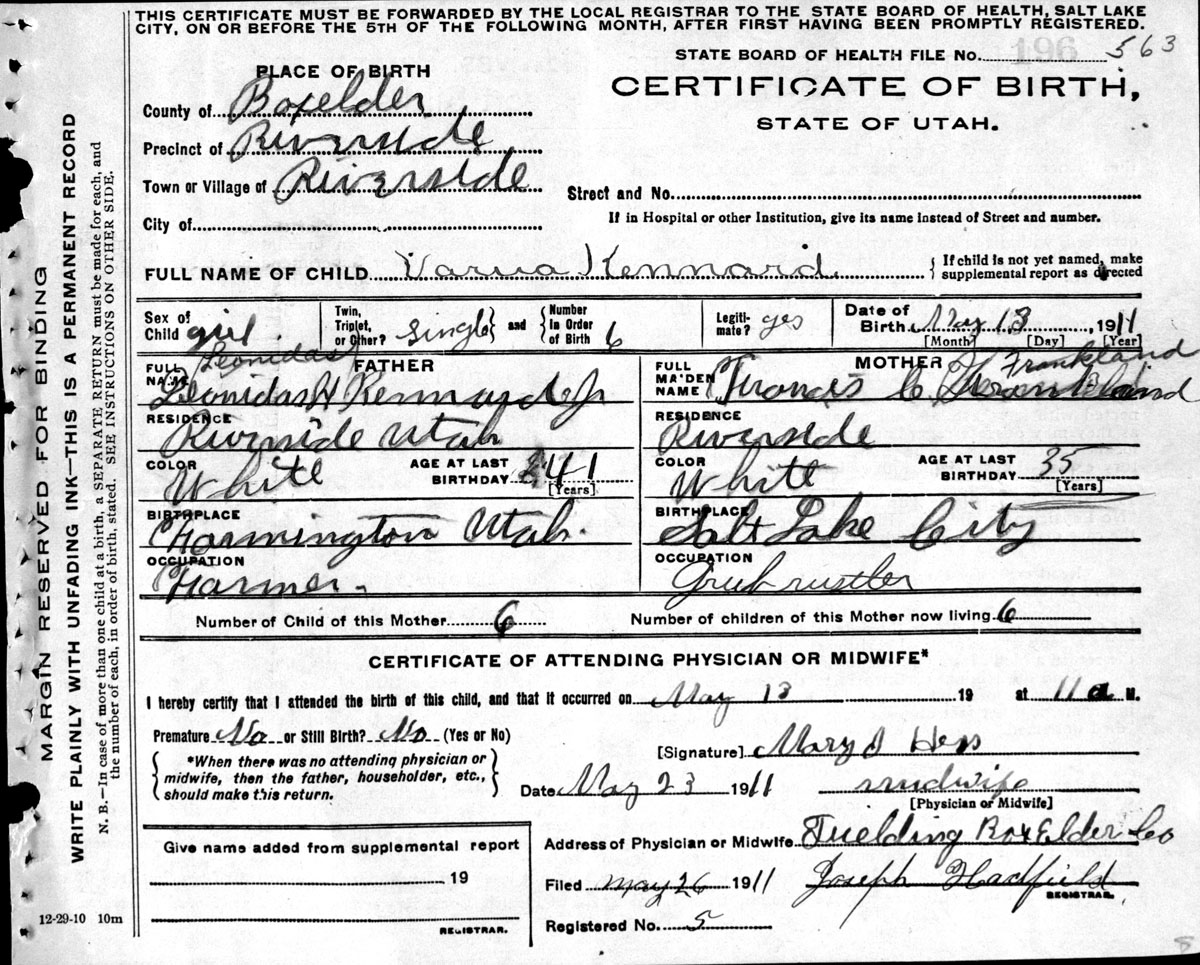 THIS CERTIFICATE MUST BE FORWARDED BY THE LOCAL REGISTRAR TO THE STATE BOARD OF HEALTH, SALT LAKE
CITY, ON OR BEFORE THE 5TH OF THE FOLLOWING MONTH, AFTER FIRST HAVING BEEN PROMPTLY REGISTERED.
STATE BOARD OF HEALTH FILE No. 196 563
PLACE OF BIRTH
CERTIFICATE OF BIRTH,
STATE OF UTAH.
County of Boxelder
Precinct of Riverside
Town or Village of Riverside
Street and No.
City of
If in Hospital or other Institution, give its name instead of Street and number.
FULL NAME OF CHILD Varua Kennard { If child is not yet named, make
supplemental report as directed
Sex of Child girl
Twin, Triplet, or Other? Single and Number In Order of Birth 6
Legitimate? yes
Date of Birth May 13, 1911
[Month] [Day] [Year]
FATHER
FULL NAME Leonidas
Leonidas H Kennard Jr
MOTHER
FULL MAIDEN NAME Francis C Frankland
RESIDENCE Riverside Utah
RESIDENCE Riverside
COLOR White AGE AT LAST BIRTHDAY 41 [Years]
COLOR White AGE AT LAST BIRTHDAY 35 [Years]
BIRTHPLACE Farmington Utah.
BIRTHPLACE Salt Lake City
OCCUPATION Farmer
OCCUPATION Grub rustler
Number of Child of this Mother 6 Number of children of this Mother now living 6
CERTIFICATE OF ATTENDING PHYSICIAN OR MIDWIFE*
I hereby certify that I attended the birth of this child, and that it occurred on May 13 19 at 11 a M.
Premature No or Still Birth? No (Yes or No)
*When there was no attending physician or
midwife, then the father, householder, etc.,
should make this return.
[Signature] Mary D Hess
Date May 23 1911 midwife
[Physician or Midwife]
Give name added from supplemental report
19
REGISTRAR.
Address of Physician or Midwife Fielding Box Elder Co
Filed May 26 1911 Joseph Hadfield
REGISTRAR.
Registered No. 5
12-29-10 10m
MARGIN RESERVED FOR BINDING
WRITE PLAINLY WITH UNFADING INK—THIS IS A PERMANENT RECORD
N. B.—In case of more than one child at a birth, a SEPARATE RETURN must be made for each, and
the number of each, in order of birth, stated. SEE INSTRUCTIONS ON OTHER SIDE.
8